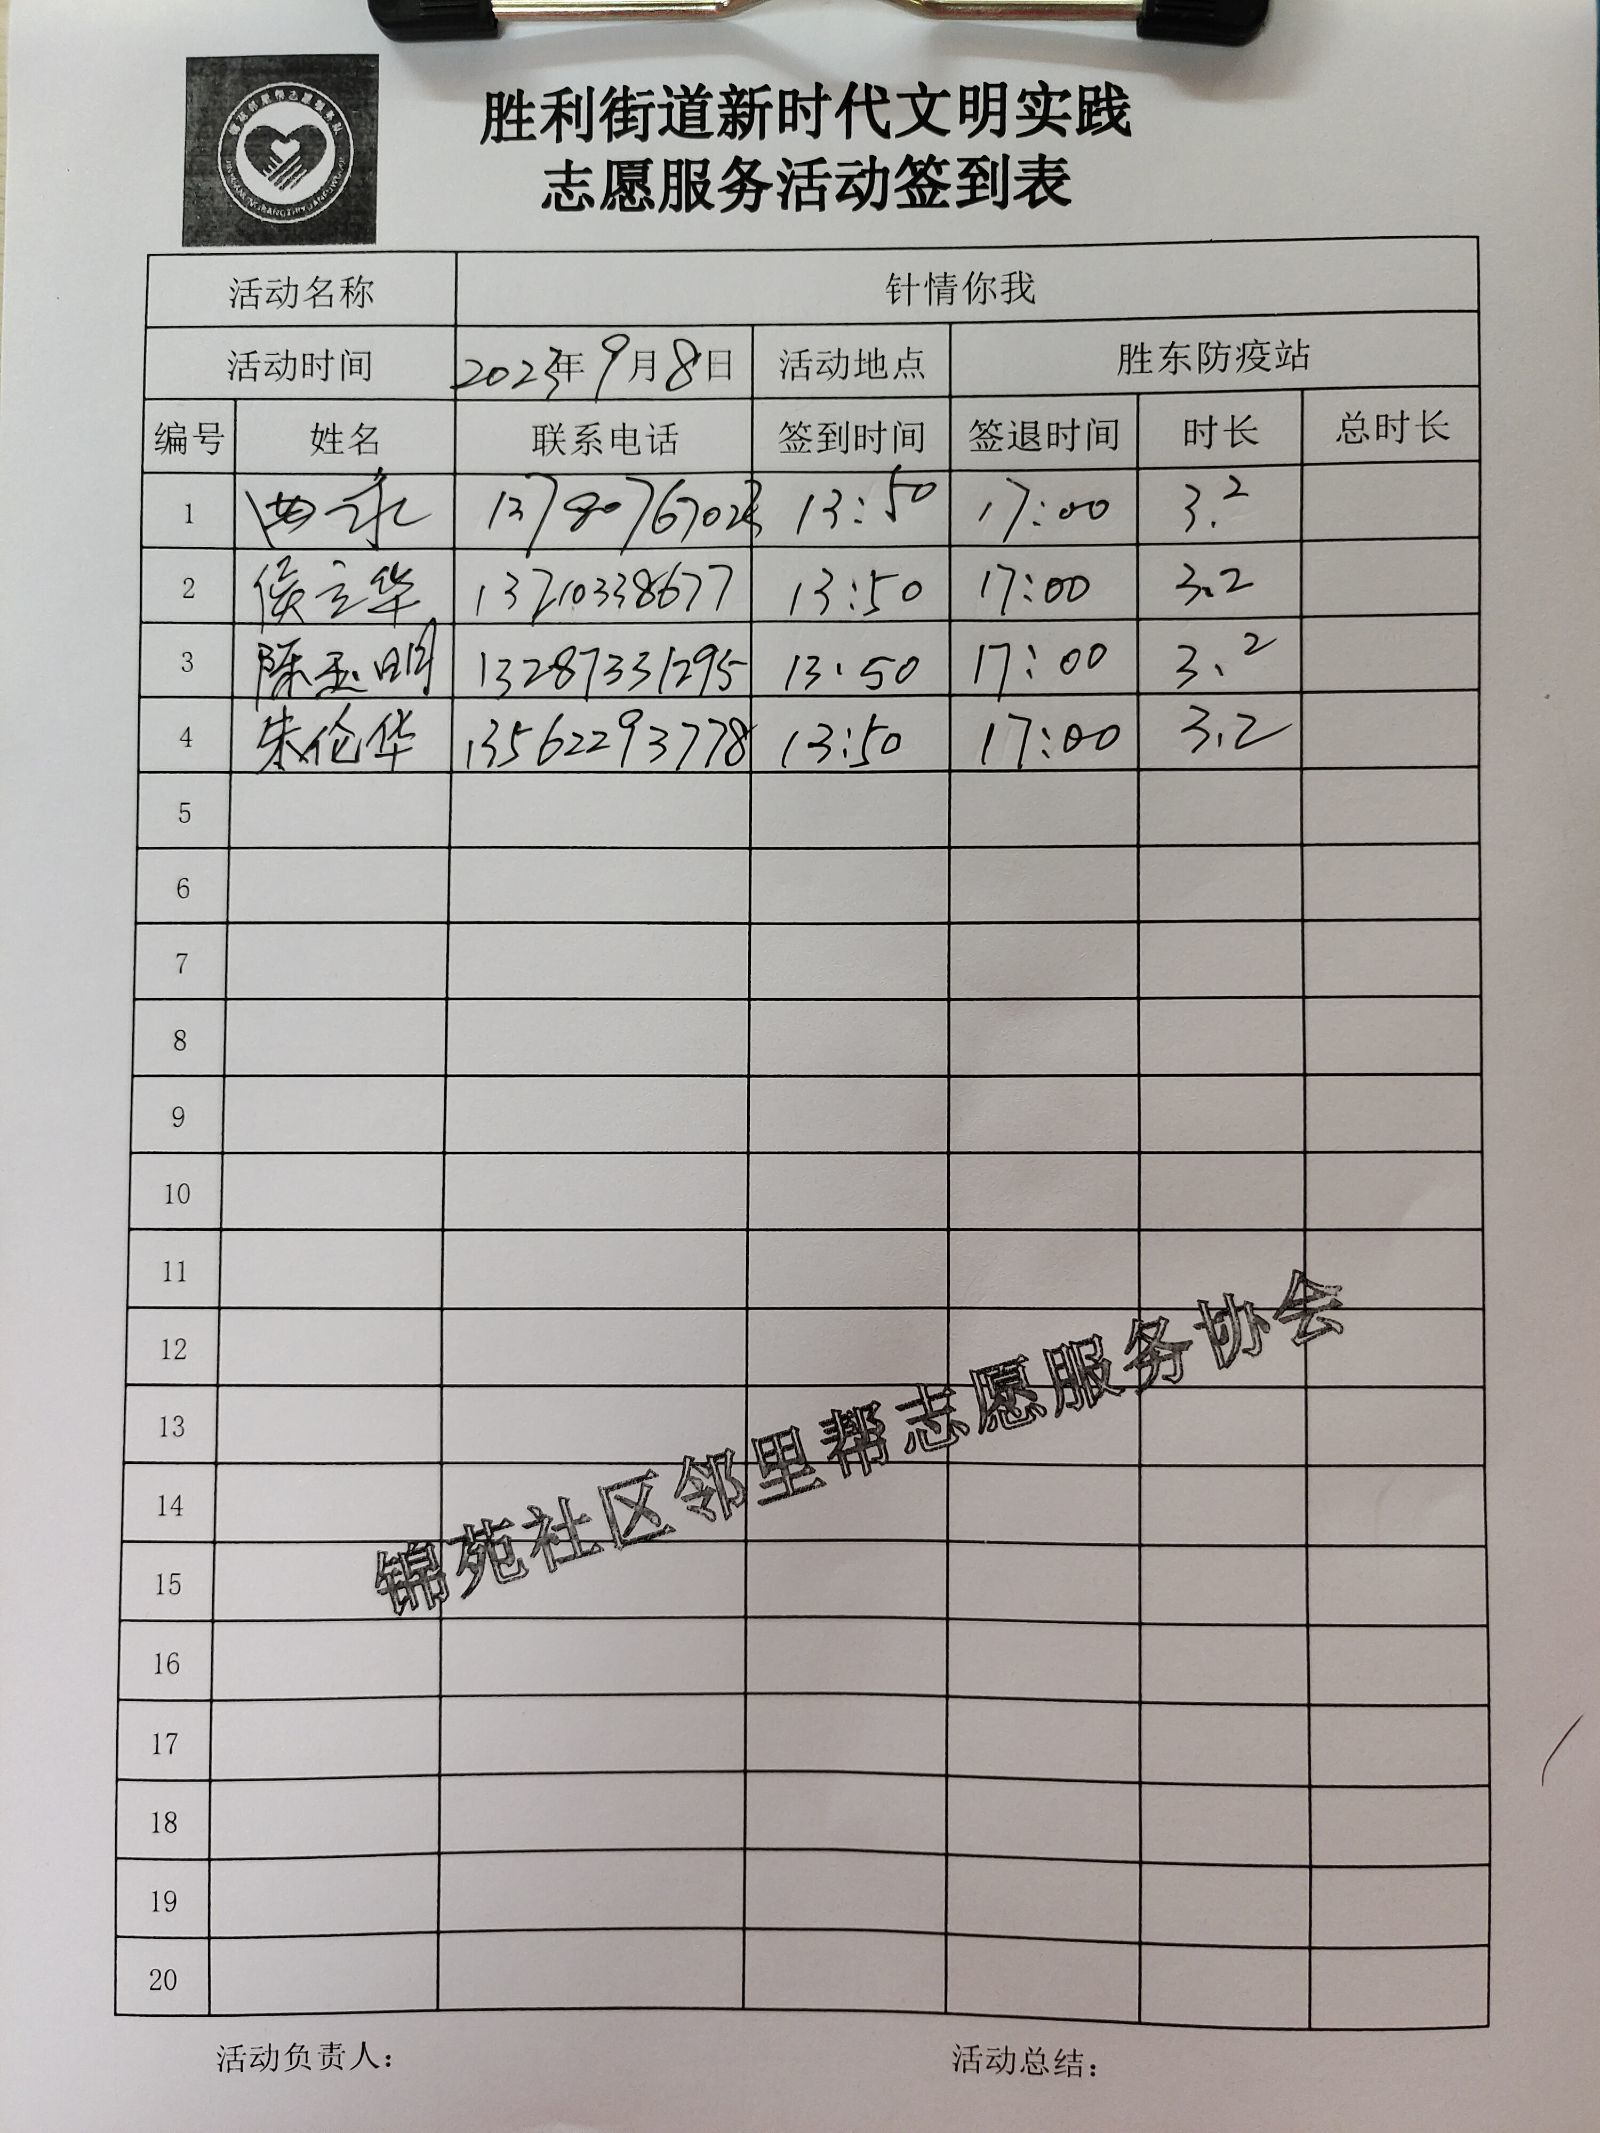 胜利街道新时代文明实践
志愿服务活动签到表
活动名称 针情你我
活动时间 2023年9月8日 活动地点 胜东防疫站
编号 姓名 联系电话 签到时间 签退时间 时长 总时长
1 13780767023 13:50 17:00 3.2
2 侯立华 13210338677 13:50 17:00 3.2
3 陈玉明 13287331295 13:50 17:00 3.2
4 朱伦华 13562293778 13:50 17:00 3.2
5
6
7
8
9
10
11
12
13
14
15
16
17
18
19
20
锦苑社区邻里帮志愿服务协会
活动负责人： 活动总结：